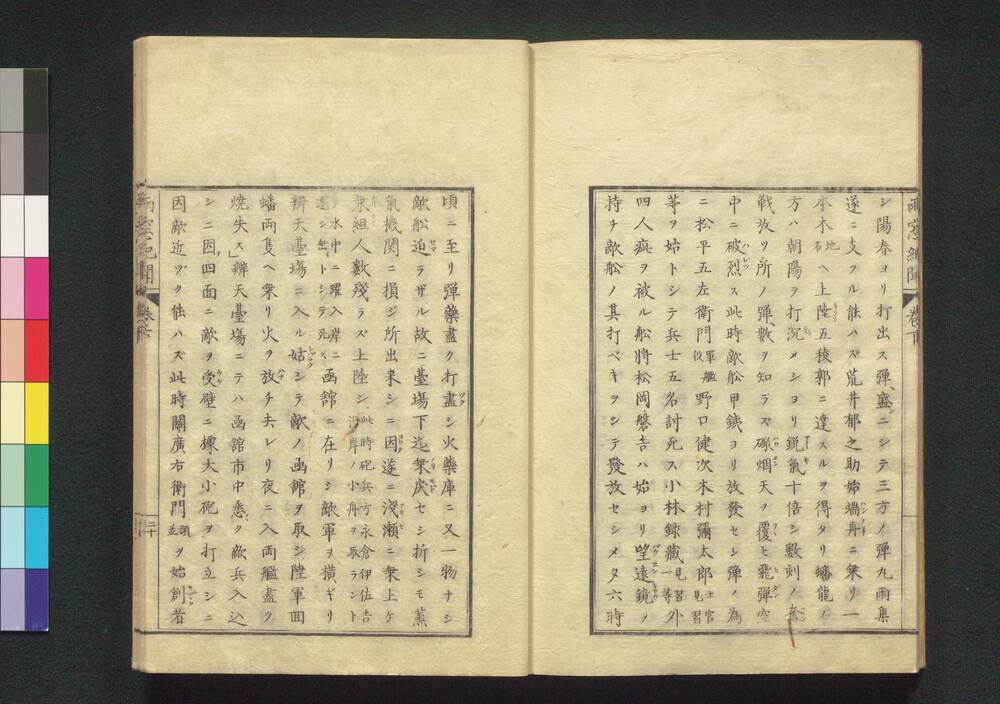 シ陽春ヨリ打出ス弾、盛ンニシテ三方ノ弾丸雨集
遂ニ支フル能ハズ荒井郁之助始端舟ニ乗リ一
本木地名ヘ上陸五稜郭ニ達スルヲ得タリ蟠龍ノ
方ハ朝陽ヲ打沉メシヨリ鋭氣十倍シ數刻ノ
戦放ツ所ノ弾、數ヲ知ラズ礮烟天ヲ覆ヒ飛弾空
中ニ破烈ス此時敵舩甲銕ヨリ放發セシ弾ノ為
ニ松平五左衛門軍艦役野口健次木村彌太郎士官見習
等ヲ始トシテ兵士五名討死ス小林録藏見習一等外
四人疵ヲ被ル舩將松岡磐吉ハ始ヨリ望遠鏡ヲ
持チ敵舩ノ其打ベキヲシテ發放セシメタ六時
頃ニ至リ弾藥盡ク打盡シ火藥庫ニ又一物ナシ
敵舩迫ラザル故ニ臺場下迄乗戻セシ折シモ蒸
氣機関ニ損ジ所出来シニ因遂ニ淺瀬ニ乗上ケ
乗組人數殘ラズ上陸シ此時砲兵方永倉伊佐吉沿岸ノ小舟ヲ取ラント
シ水中ニ躍入岸ニ達シ無トシテ死ス函館ニ在リシ敵軍ヲ横ギリ
辨天臺場ニ入ル姑シテ敵ノ函館ヲ取シ陸軍囬
蟠両隻ヘ乗リ火ヲ放チ去レリ夜ニ入両艦盡ク
焼失ス」辨天臺場ニテハ函館市中悉ク敵兵入込
シニ因四面ニ敵ヲ受壁ニ據大小砲ヲ打立シニ
因敵近ヅク能ハズ此時關廣右衛門頭並ヲ始創者
雨窓紀聞
巻下
二十